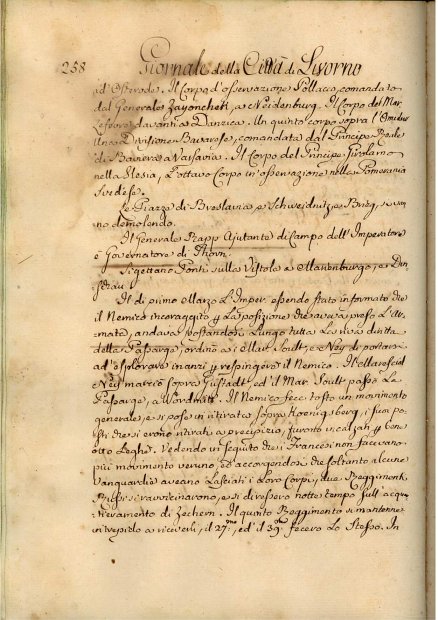 258 Giornale della Città di Livorno
ad' Osterode. Il Corpo d'osservazione Pollacco, comandato
dal Generale Zayoncheck, a Neidenburg. Il Corpo del Mar.
Lefbvre davanti a Danzica. Un quinto corpo sopra l'Omulew
Una Divisione Bavarese, comandata dal Principe Reale
di Baviera a Varsavia. Il Corpo del Principe Girolamo
nella Slesia, l'ottavo Corpo in osservazione nella Pomerania
Svedese.
Le Piazze di Breslavia e Schweidnitz e Brieg, si van-
no demolendo.
Il Generale Rapp Ajutante di Campo dell' Imperatore
è Governatore di Thorn.
Si gettano Ponti sulla Vistola a Marienburgo, e Din-
Il dì primo Marzo L'Imper. essendo stato informato che
il Nemico incoraggito la posizione che aveva preso L'Ar-
mata, andava postandosi Lungo tutta La riva dritta
della Passarge, ordinò ai Mar. Soult, e Ney di portarsi
ad' esplorare inanzi respingere il Nemico. Il Maresciallo
Ney marciò sopra Gustadt, ed il Mar. Soult passò La
Passarge, a Wordhitt. Il Nemico fece tosto un movimento
generale, e si pose in ritirata sopra Koenigsberg, i suoi po-
sti che si erano ritirati a precipizio, furono incalzati bene
otto Leghe. Vedendo in seguito che i Francesi non facevano
più movimento veruno, ed accorgendosi che soltanto alcune
Vanguardie aveano Lasciati i Loro Corpi, due Reggimenti
Russi si ravvicinarono, e si diressero notte tempo sull' acqu-
artieramento di Zechern. Il quinto Reggimento si mantenne
intrepido a riceverli, il 27.mo, ed' il 39.mo fecero Lo stesso. In